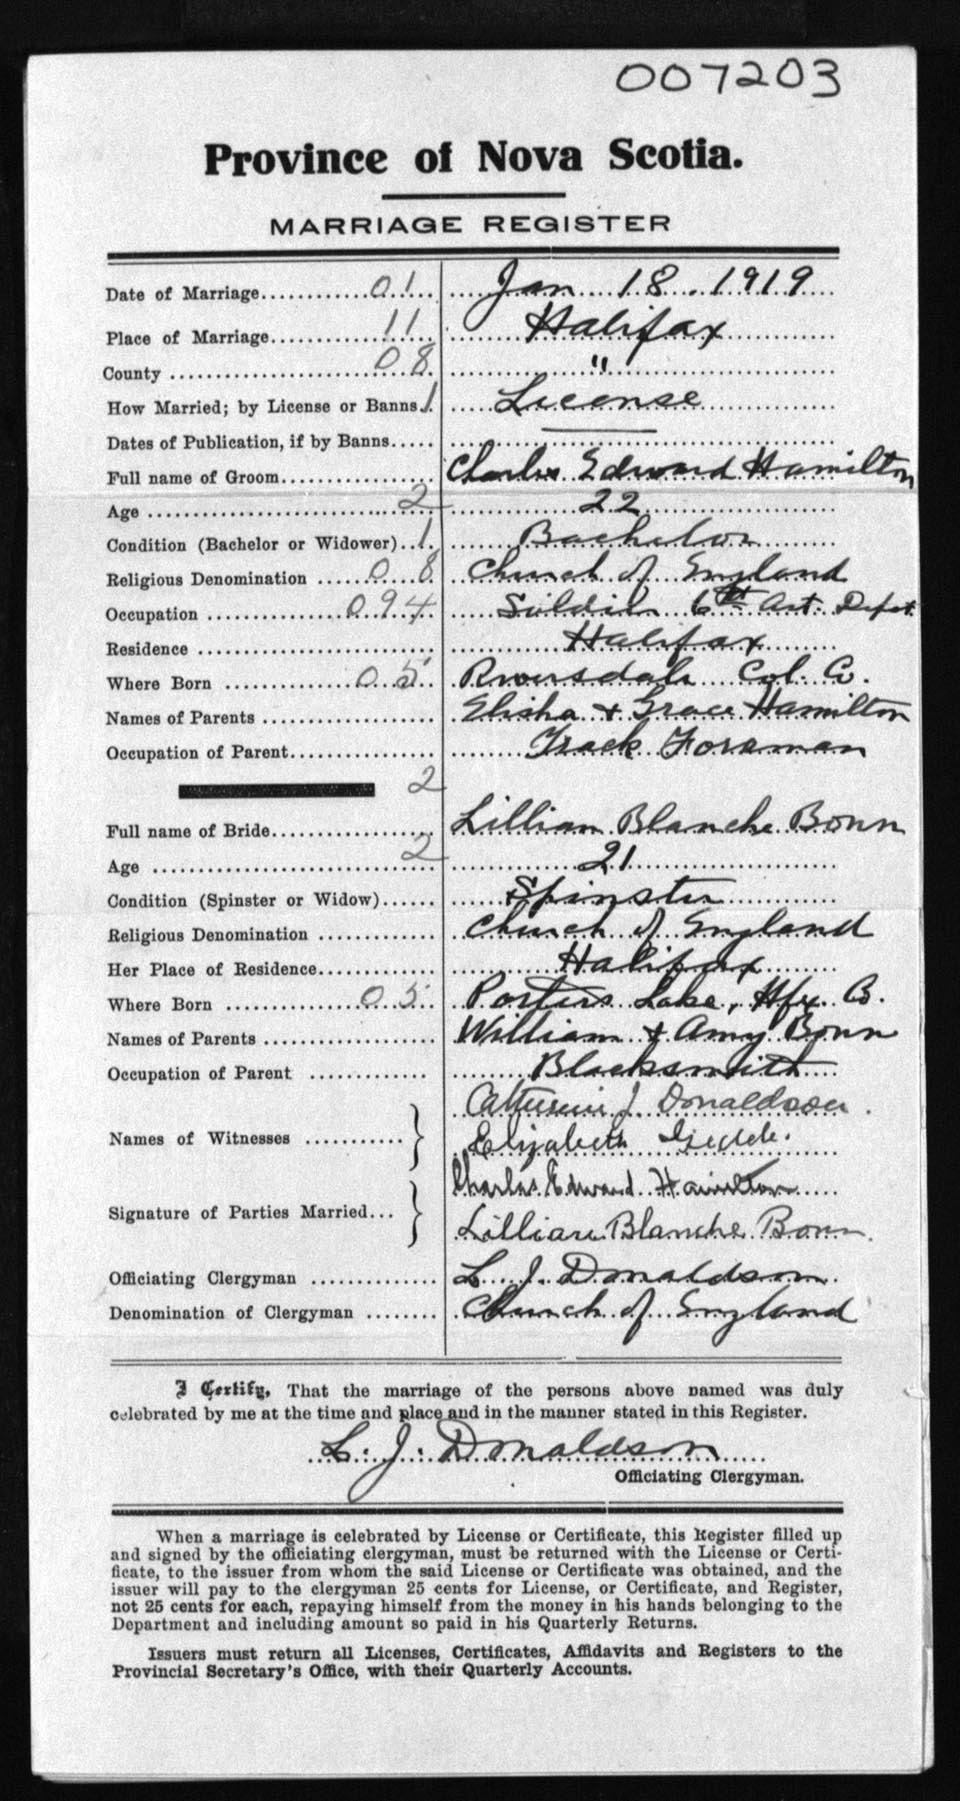 007203
Province of Nova Scotia.
MARRIAGE REGISTER
Date of Marriage............01.. ....Jan 18. 1919....
Place of Marriage............11.. Halifax
County ............08.. "
How Married; by License or Banns..1. License
Dates of Publication, if by Banns..... ———
Full name of Groom................ Charles Edward Hamilton
Age ............2 22
Condition (Bachelor or Widower)..1. Bachelor
Religious Denomination ......08 Church of England
Occupation ............094 Soldier 6th Art. Depot
Residence ........................ Halifax
Where Born ............05.. Riversdale Col. Co.
Names of Parents .................. Elisha & Grace Hamilton
Occupation of Parent................ Track Foreman
2
Full name of Bride................ Lillian Blanche Bonn
Age ............2 21
Condition (Spinster or Widow)...... Spinster
Religious Denomination ............ Church of England
Her Place of Residence............ Halifax
Where Born ............05.. Porters Lake, Hfx. Co.
Names of Parents .................. William & Amy Bonn
Occupation of Parent ............ Blacksmith
Catherine J. Donaldson.
Names of Witnesses ........... } Elizabeth
Charles Edward Hamilton
Signature of Parties Married... }
Lillian Blanche Bonn.
Officiating Clergyman ............ L. J. Donaldson
Denomination of Clergyman ........ Church of England
I Certify, That the marriage of the persons above named was duly
celebrated by me at the time and place and in the manner stated in this Register.
L. J. Donaldson
Officiating Clergyman.
When a marriage is celebrated by License or Certificate, this Register filled up
and signed by the officiating clergyman, must be returned with the License or Certi-
ficate, to the issuer from whom the said License or Certificate was obtained, and the
issuer will pay to the clergyman 25 cents for License, or Certificate, and Register,
not 25 cents for each, repaying himself from the money in his hands belonging to the
Department and including amount so paid in his Quarterly Returns.
Issuers must return all Licenses, Certificates, Affidavits and Registers to the
Provincial Secretary's Office, with their Quarterly Accounts.